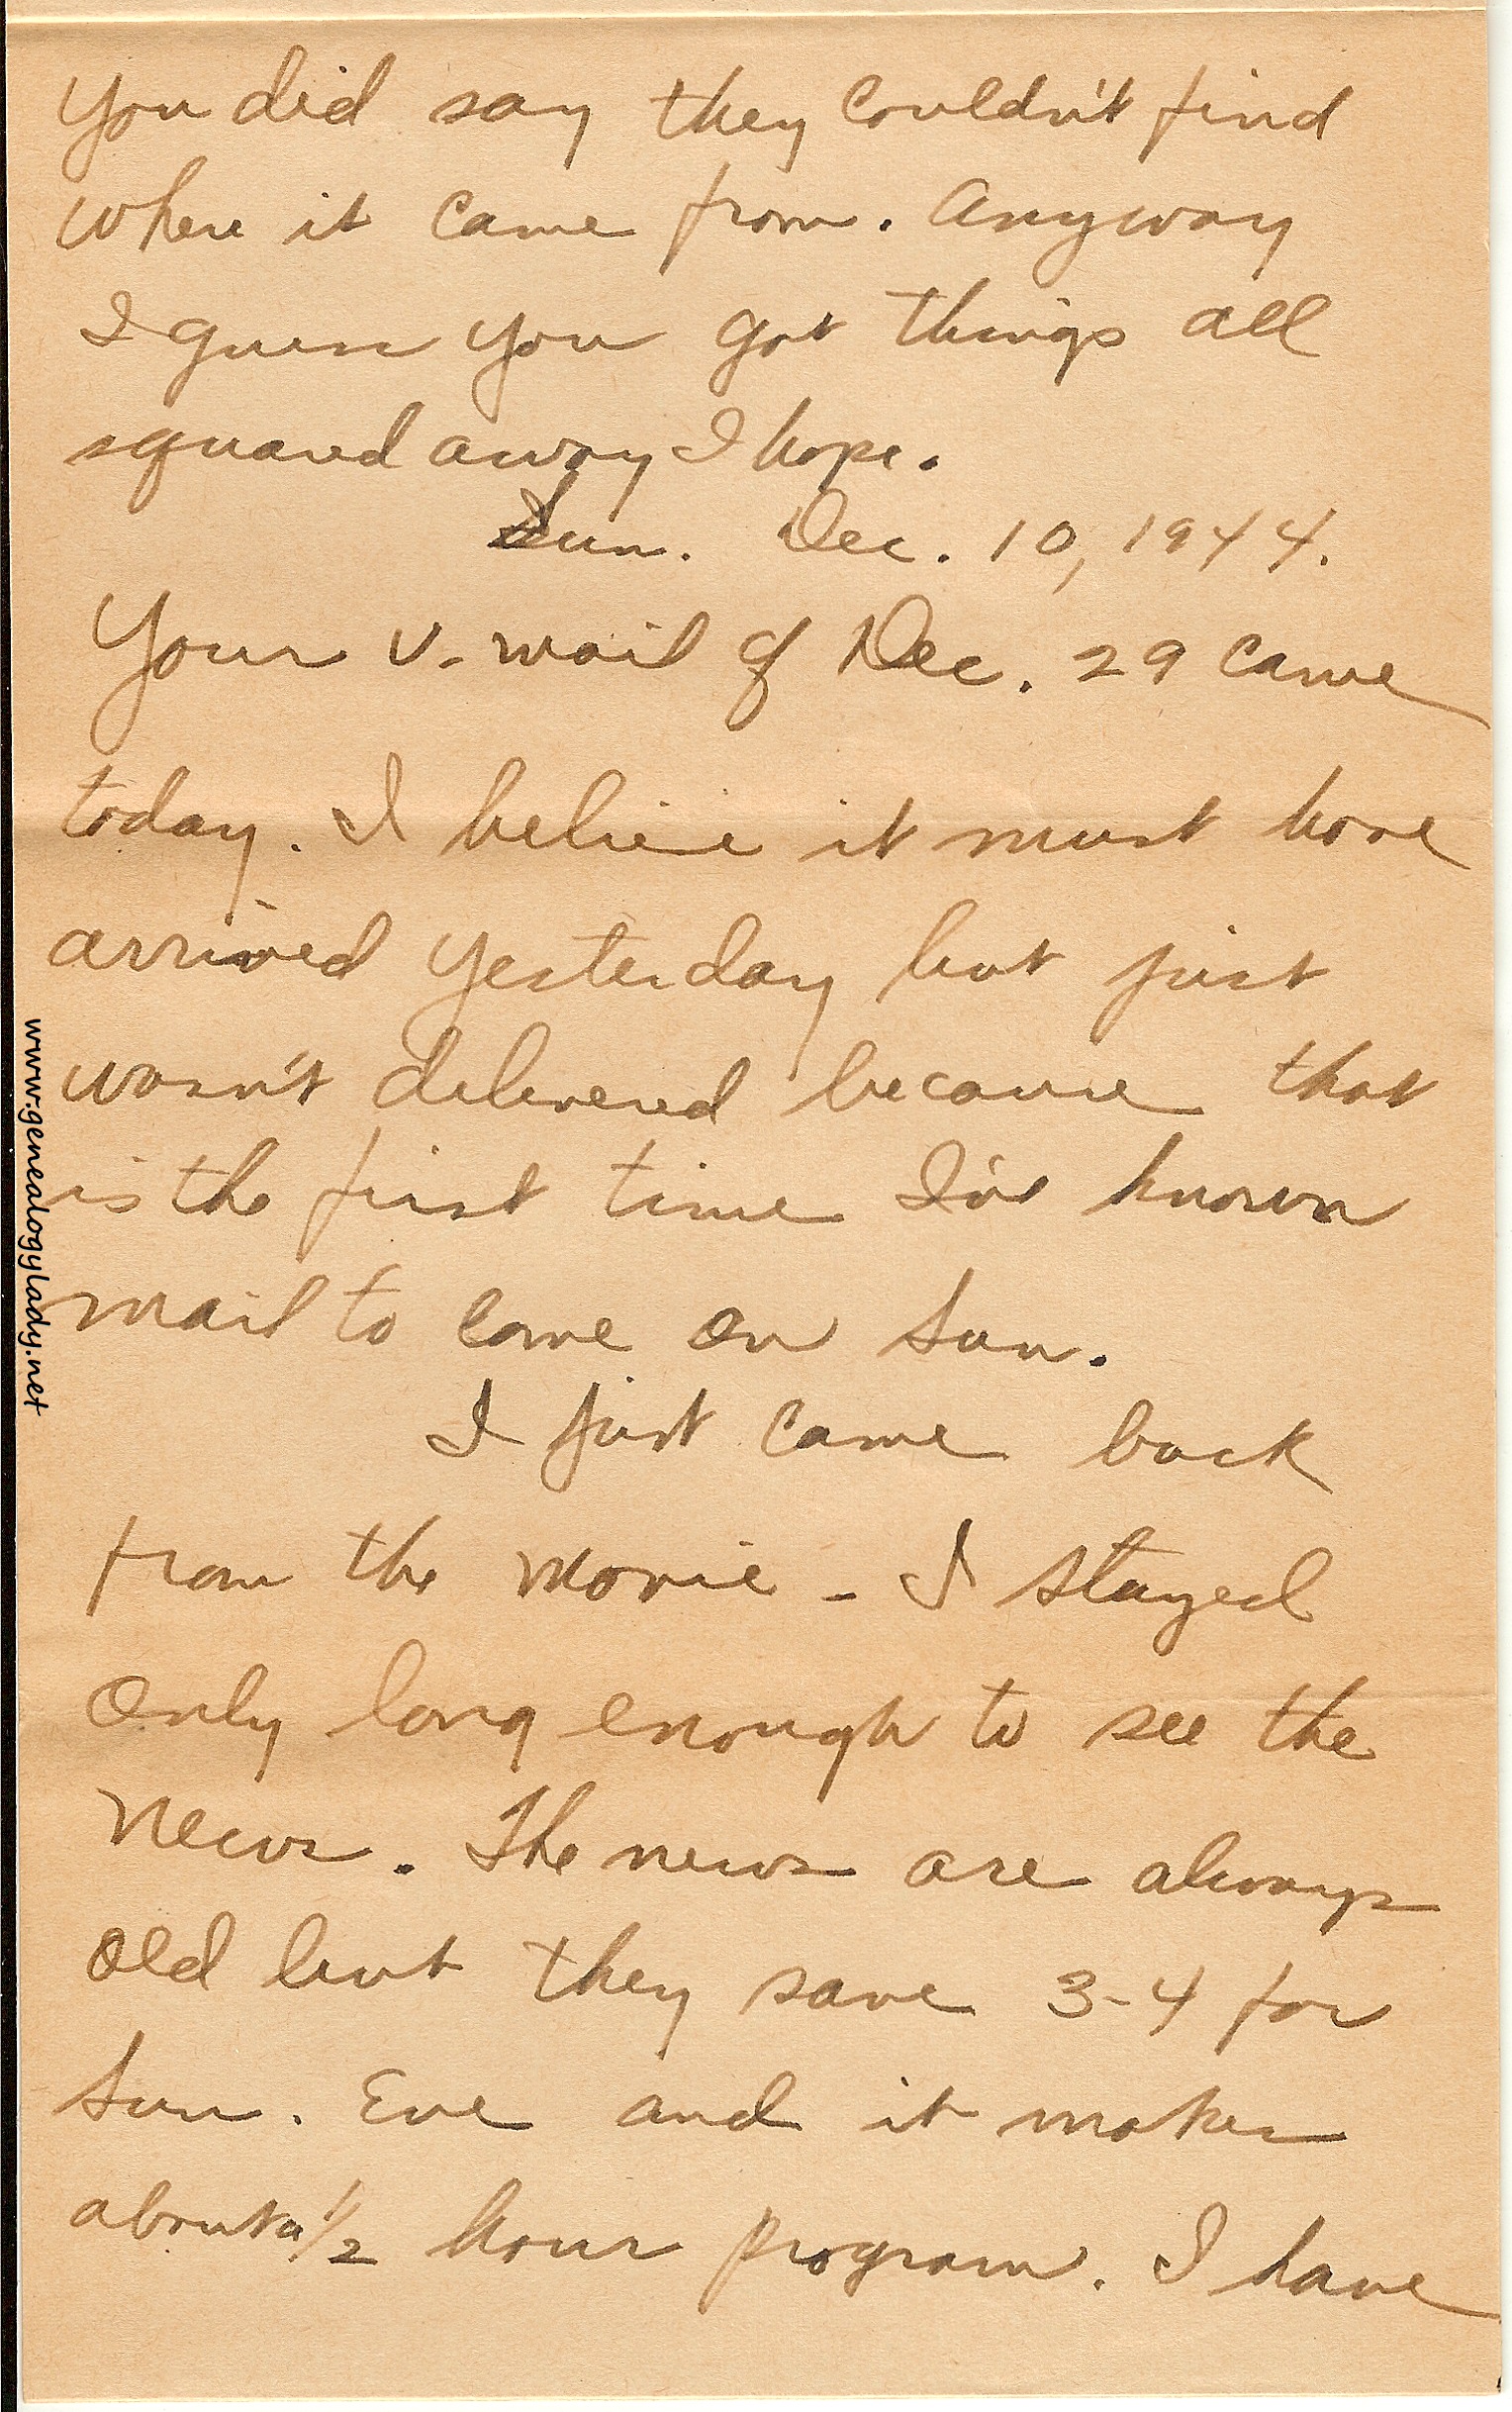 You did say they couldn't find
where it came from. Anyway
I guess you got things all
squared away I hope.
Sun. Dec. 10, 1944.
Your V-mail of Dec. 29 came
today. I believe it must have
arrived yesterday but just
wasn't delivered because that
is the first time I've known
mail to come on Sun.
I just came back
from the movie - I stayed
only long enough to see the
news. The news are always
old but they save 3-4 for
Sun. Eve and it makes
about a 1/2 hour program. I have
www.genealogylady.net